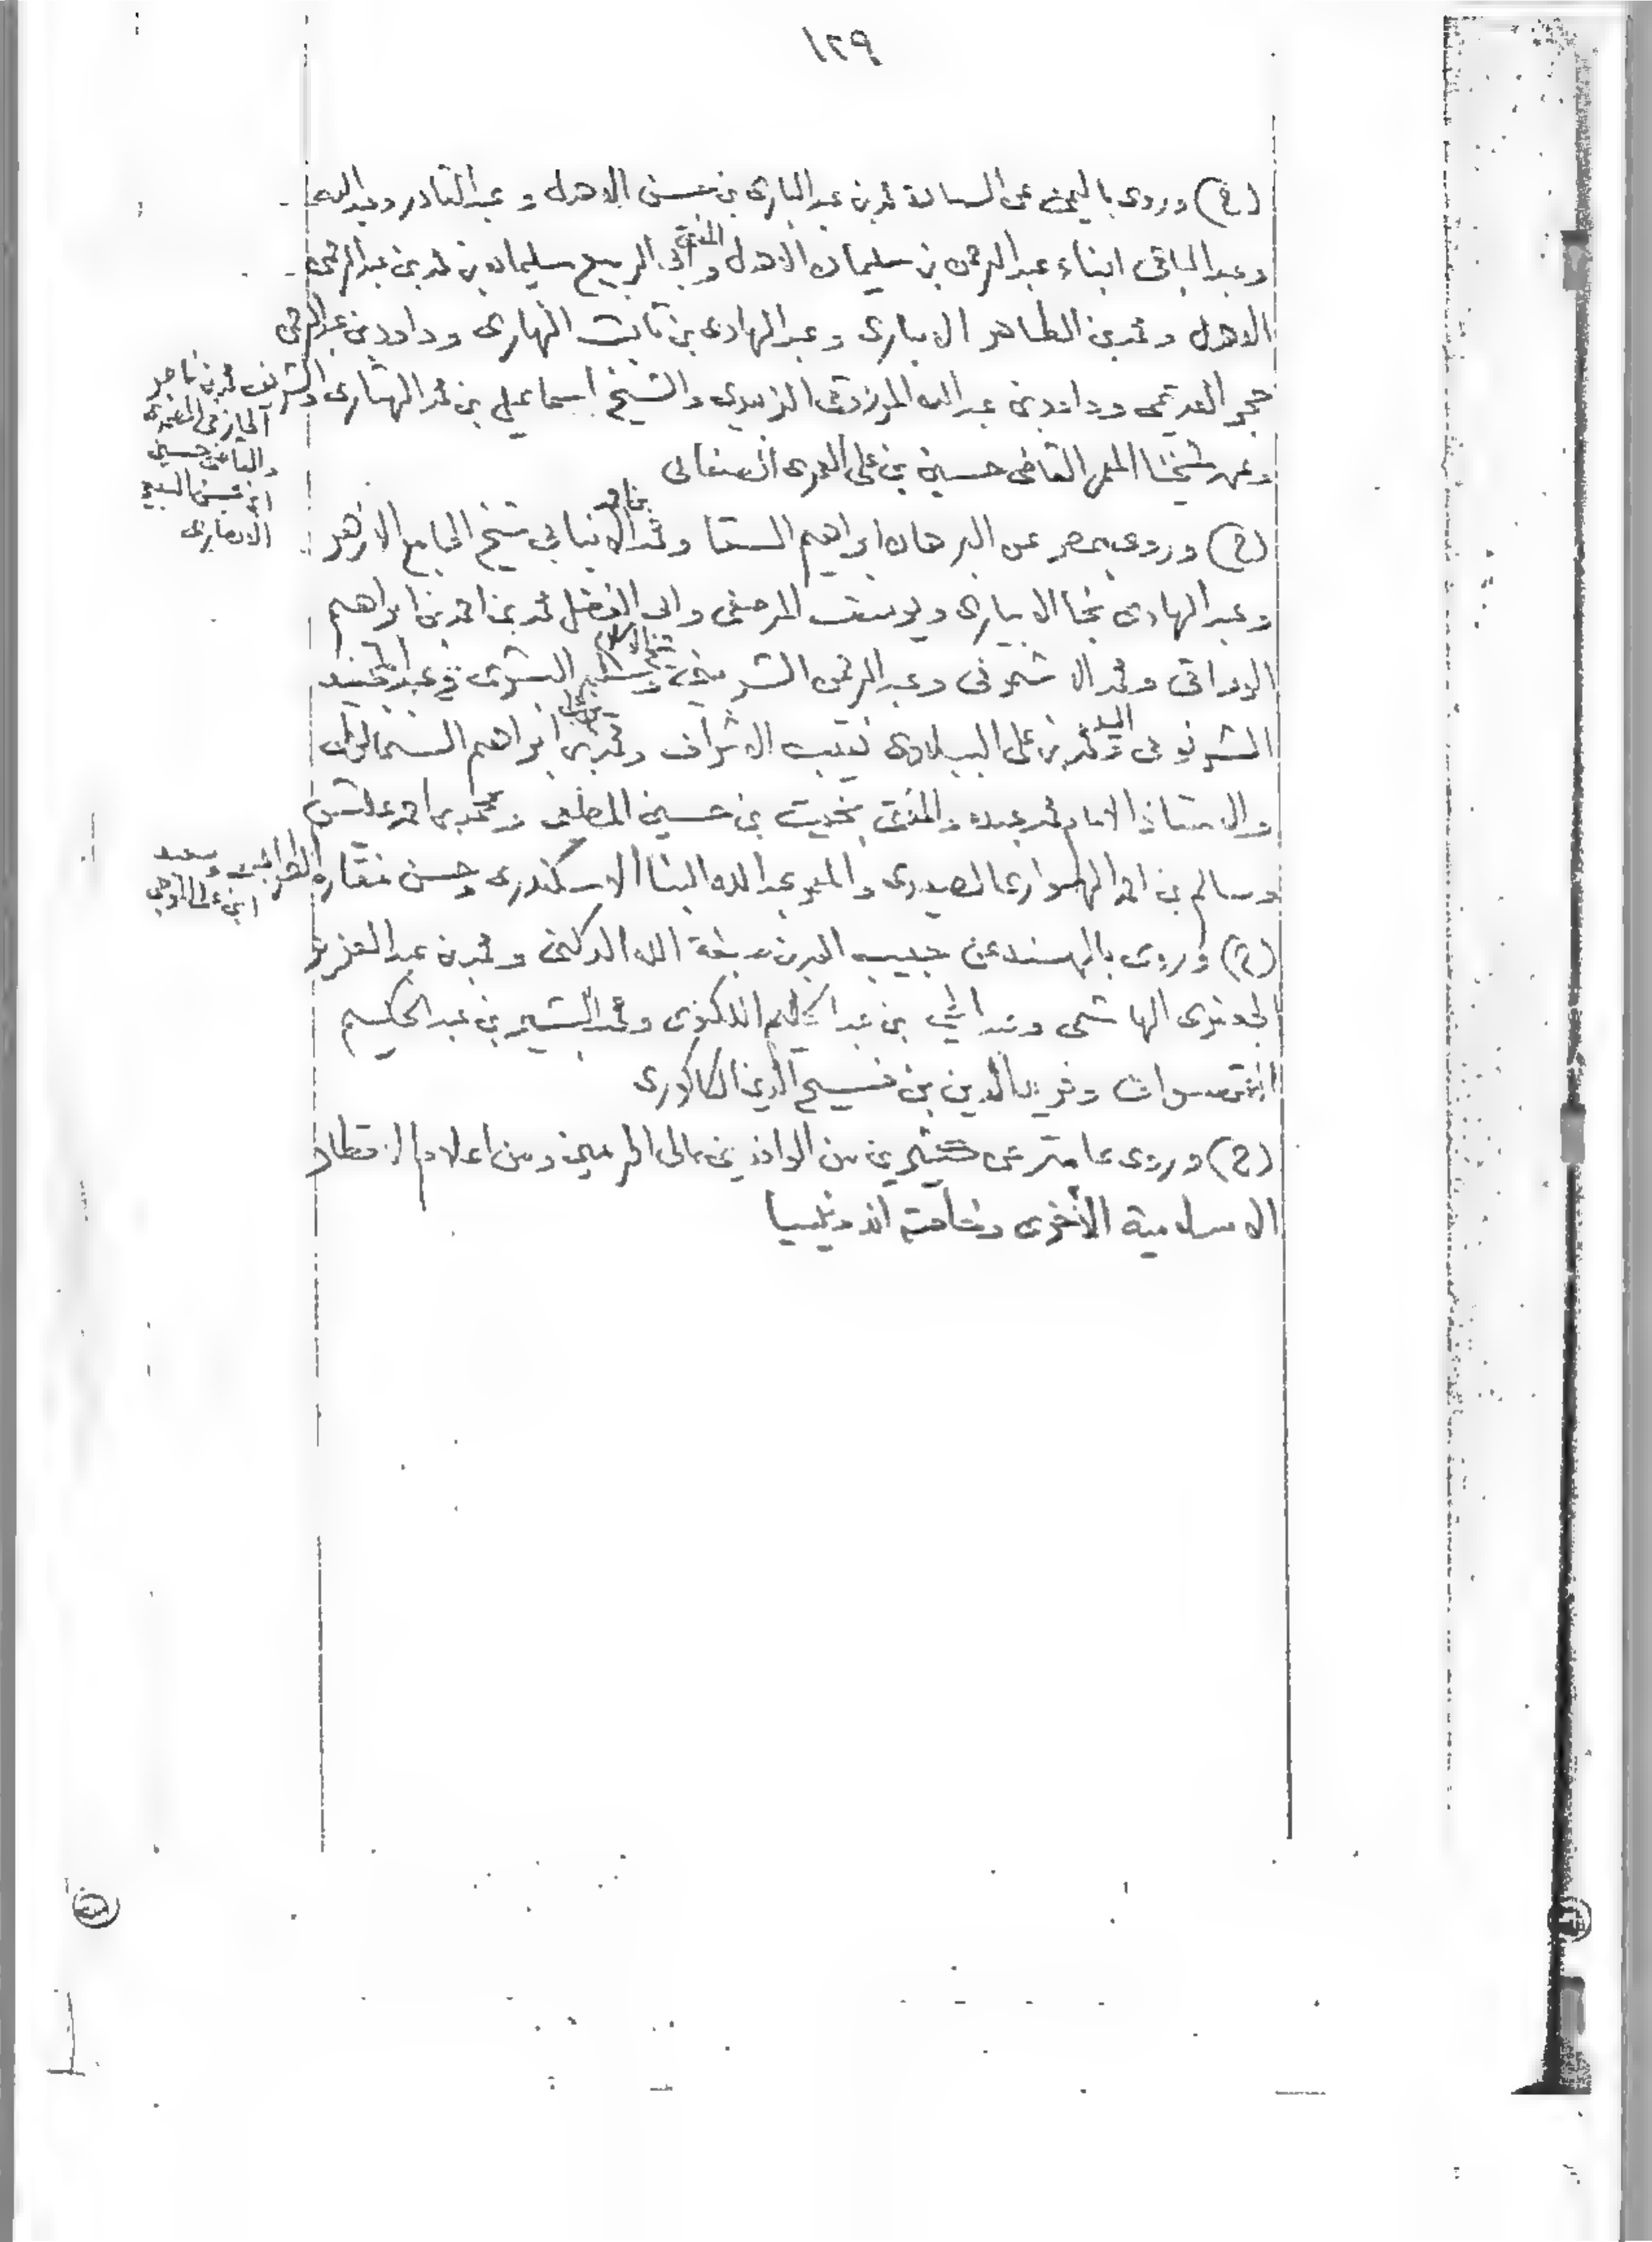 ١٢٩
(ح) وروى باليمن عن السادة محمد بن عبد الباري بن حسن الاهدل و عبد القادر وعبد الله
وعبد الباقي ابناء عبد الرحمن بن سليمان الاهدل المفتي وأبي الربيع سليمان بن محمد بن عبد الرحمن
الاهدل ومحمد بن الطاهر الانباري وعبد الهادي بن ثابت النهاري وداود بن عبد الرحمن
حجر القديمي وداود بن عبد الله المرزوقي الزبيدي والشيخ اسماعيل بن محمد والشريف محمد بن ناصر
الحازمي
والقاضي حسين
ابن محسن السبعي
الانصاري
وعن شيخنا المعمر القاضي حسين بن علي العمري الصنعاني
(ح) وروى بمصر عن البرهان ابراهيم السقا ومحمد الانبابي شيخ الجامع الازهر
وعبد الهادي نجا الابياري ويوسف المرصفي وابي الفضل محمد بن احمد بن ابراهيم
ومحمد الاشموني وعبد الرحمن الشربيني وسليم البشري
السيد علي الببلاوي نقيب الاشراف ومحمد بن ابراهيم السمالوطي
والاستاذ الامام محمد عبده والمفتي بخيت بن حسين المطيعي ومحمد بن احمد عليش
وسالم بن احمد الهواري الصيدري والمعمر عبد الله البنا الاسكندري وحسن منقاره الطرابلسي وسعيد
ابن علي الموجي
(ح) وروى بالهند عن حبيب الدين صبغة الله الدكني ومحمد بن عبد العزيز
الجعفري الهاشمي وعبد الحي بن عبد الحليم اللكنوي ومحمد البشير بن عبد الحكيم
وفريد الدين بن فسيح الدين الكاكوري
(ح) وروى عامة عن كثيرين من الوافدين الى الحرمين ومن اعلام الاقطار
الاسلامية الأخرى وخاصة اندونيسيا